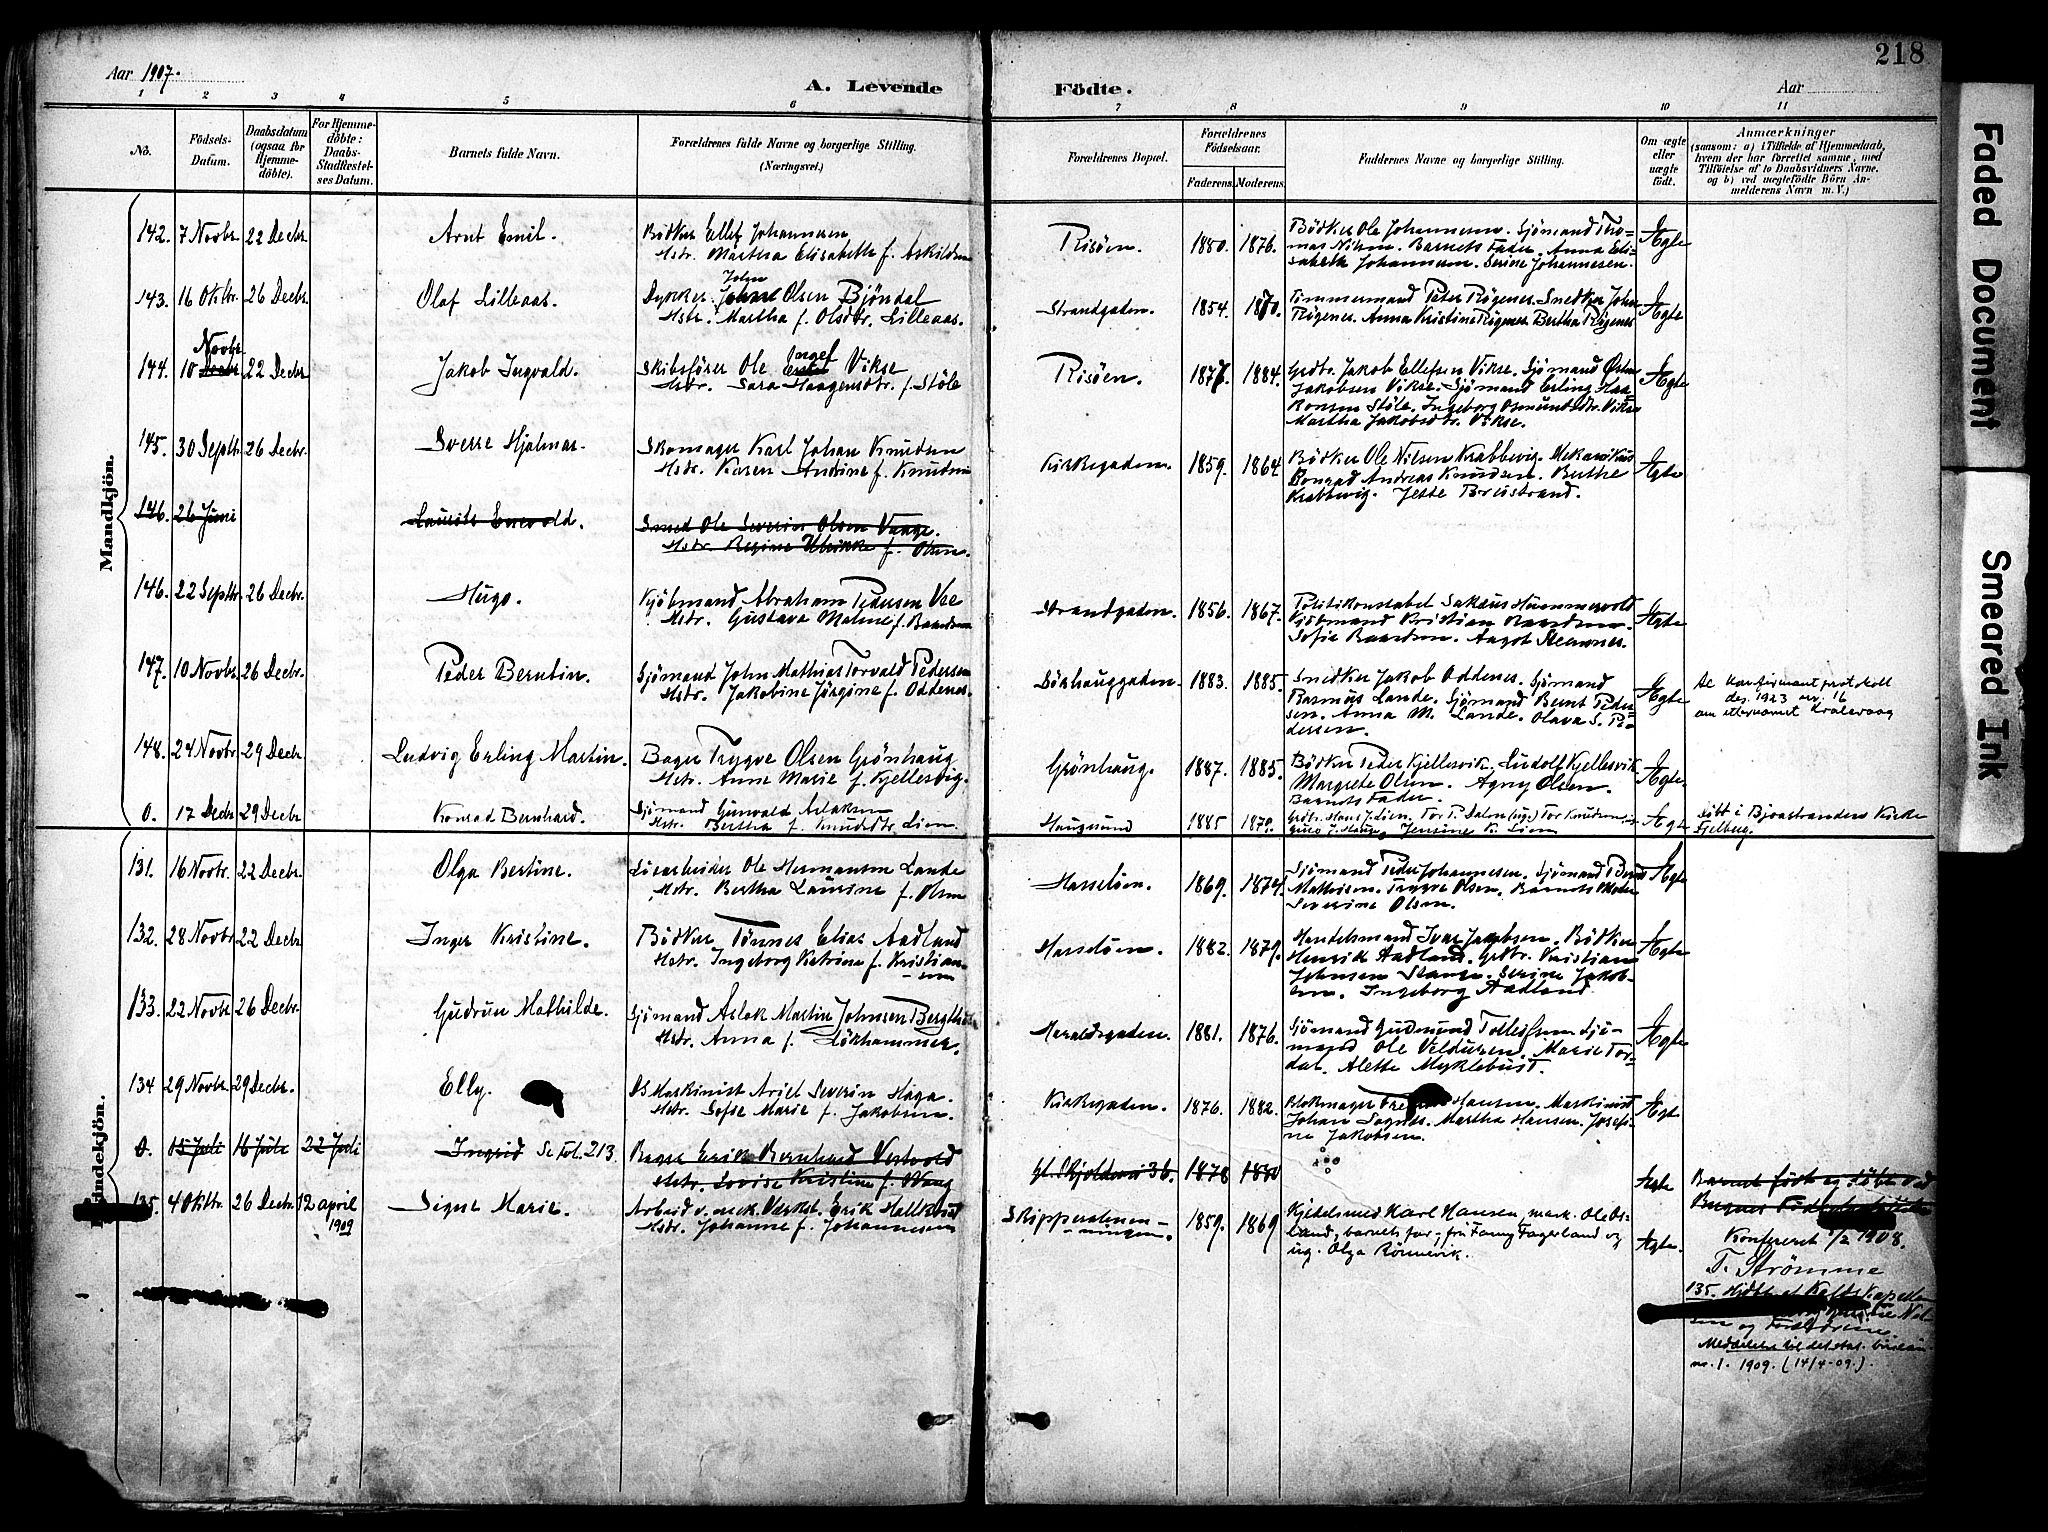 218
Aar 1907.
A. Levende
Födte.
Aar
1 2 3 4 5 6 7 8 9 10 11
No.
Födsels-
Datum.
Daabsdatum
(ogsaa for
Hjemme-
döbte).
For Hjemme-
döbte:
Daabs-
Stadfæstel-
ses Datum.
Barnets fulde Navn.
Forældrenes fulde Navne og borgerlige Stilling.
(Næringsvei.)
Forældrenes Bopæl.
Forældrenes
Födselsaar.
Faderens. Moderens.
Faddernes Navne og borgerlige Stilling.
Om ægte
eller
uægte
födt.
Anmærkninger
(saasom: a) i Tilfælde af Hjemmedaab,
hvem der har forrettet samme, med
Tilföielse af to Daabsvidners Navne.
og b) ved uægtefödte Börn An-
melderens Navn m. V.)
Mandkjön.
142. 7 Novbr. 22 Decbr. Arnt Emil. Bödker Ellef Johannesen
Hstr. Martha Elisabeth f. Askildsen
Risöen. 1880. 1876. Bödker Ole Johannesen. Sjömand Tho-
mas Nilsen. Barnets Fader. Anna Eli-
sabeth Johannesen. Serine Johannesen. Ægte
143. 16 Oktbr. 26 Decbr. Olaf Lilleaas. John
Olsen Bjöndal
Hstr. Martha f. Olsdtr. Lilleaas.
Strandgaden. 1854. 1870. Tömmermand Peter Rögenes. Snedker John
Rögenes. Anna Kristine Rögenes Bertha Rögenes Ægte
Novbr.
144. 10 Decbr 22 Decbr Jakob Ingvald. Skibsförer Ole Vikse
Hstr. Sara Haagensdtr. f. Stöle
Risöen. 1877. 1884. Grdbr. Jakob Ellefsen Vikse. Sjömand
Jakobsen Vikse. Sjömand Erling Haa-
konsen Stöle. Ingeborg Osmundsdtr. Vikse
Martha Jakobsdtr. Vikse. Ægte
145. 30 Septbr. 26 Decbr. Sverre Hjalmar. Skomager Karl Johan Knudsen
Hstr. Karen Andrine f. Knudsen
Kirkegaden. 1859. 1864. Bödker Ole Nilsen Krabbevig. Mekanikus
Konrad Andreas Knudsen. Berthe
Krabbevig. Jette Breistrand. Ægte
146. 26 Juni Laurits Enevold. Smed Ole Severin Olsen Vaage.
Hstr. Regine Ulrikke f. Olsen.
146. 22 Septbr. 26 Decbr. Hugo. Kjöbmand Abraham Pedersen Vee
Hstr. Gustava Maline f. Baardsen
Strandgaden. 1856. 1867. Politikonstabel Sakæus Hummervold
Kjöbmand Kristian Baardsen.
Sofie Baardsen. Aagot Ægte
147. 10 Novbr. 26 Decbr. Peder Berntin. Sjömand John Mathias Torvald Pedersen
Hstr. Jakobine Jörgine f. Oddenes.
Sörhauggaden. 1883. 1885. Snedker Jakob Oddenes. Sjömand
Rasmus Lande. Sjömand Bernt Peder-
sen. Anna M. Lande. Olava S. Pe-
dersen. Ægte Se konfirmantprotokoll
des. 1923 nr. 16
om etternavnet
148. 24 Novbr. 29 Decbr. Ludvig Erling Martin. Bager Trygve Olsen Grönhaug
Hstr. Anne Marie f. Kjellesvig.
Grönhaug. 1887. 1885. Bödker Peder Kjellesvik. Ludolf Kjellesvik
Margrete Olsen. Agny Olsen.
Barnets Fader. Ægte.
0. 17 Decbr 29 Decbr Konrad Bernhard. Sjömand Gunvald Aslaksen
Hstr. Bertha f. Knudsdtr. Lien.
Haugesund 1885 Jensine K. Lien Ægte Döbt i Bjoastrandens Kirke
Fjelberg.
Kvindekjön.
131. 16 Novbr. 22 Decbr. Olga Bertine. Ole Hermansen Lande
Hstr. Bertha Laurine f. Olsen
Hasselöen. 1869. 1874. Sjömand Peder Johannesen. Sjömand Bernt
Mathisen. Trygve Olsen. Barnets Moder
Severine Olsen. Ægte
132. 28 Novbr 22 Decbr Inger Kristine. Bödker Tönnes Elias Aadland
Hstr. Ingeborg Katrine f. Kristian-
sen
Hasselöen. 1882. 1879. Handelsmand Ivar Jakobsen. Bödker
Henrik Aadland. Grdbr. Kristian
Johnsen Stange. Serine Jakob-
sen. Ingeborg Aadland. Ægte
133. 22 Novbr 26 Decbr. Gudrun Mathilde. Sjömand Aslak Martin Johnsen
Hstr. Anna f. Lökhammer.
Haraldsgaden. 1881. 1876. Sjömand Gudmund Tollefsen. Sjö-
mand Ole Marie Tor-
dal. Alette Myklebust. Ægte
134 29 Novbr. 29 Decbr. Elly. DS Maskinist Ariel Severin Haga.
Hstr. Sofie Marie f. Jakobsen.
Kirkegaden. 1876. 1882. Blokmager Hansen. Maskinist
Johan Sognes. Martha Hansen. Josefi-
ne Jakobsen. Ægte
0. 15 Juli 16 Juli 22 Juli Ingrid Se fol. 213. Bager Erik Bernhard Vestvold
Hstr. Lovise Kristine f. Waag
Skjoldavei 36. 1878 1880 Ægte Barnet födt og döbt ved
Bergens Födselsstiftelse
Konfereret 1/2 1908.
T. Strömme
135. 4 Oktbr. 26 Decbr. 12 april
1909 Signe Marie. Arbeid v. mek. Værkst. Erik Hallesen
Hstr. Johanne f. Johannesen
Skipperalmen-
ningen. 1859. 1869 Kjedelsmed Karl Hansen, mask. Ole Ös-
land, barnets far, fru Fanny Fagerland og
ug. Olga Rönnevik. Ægte.
135. Hjdbt. af
Meddelelse til det stat. bureau
nr. 1. 1909. (14/4-09.).
Faded Document
Smeared Ink